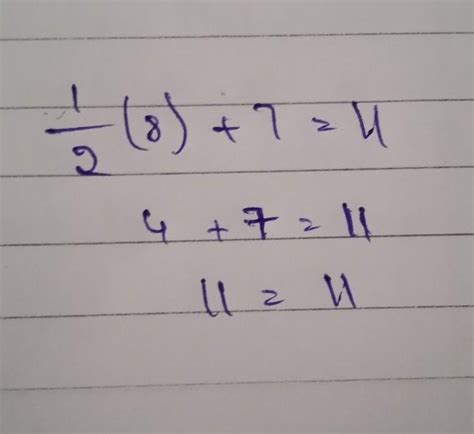 1/2 (8) + 7 = 11
4 + 7 = 11
11 = 11